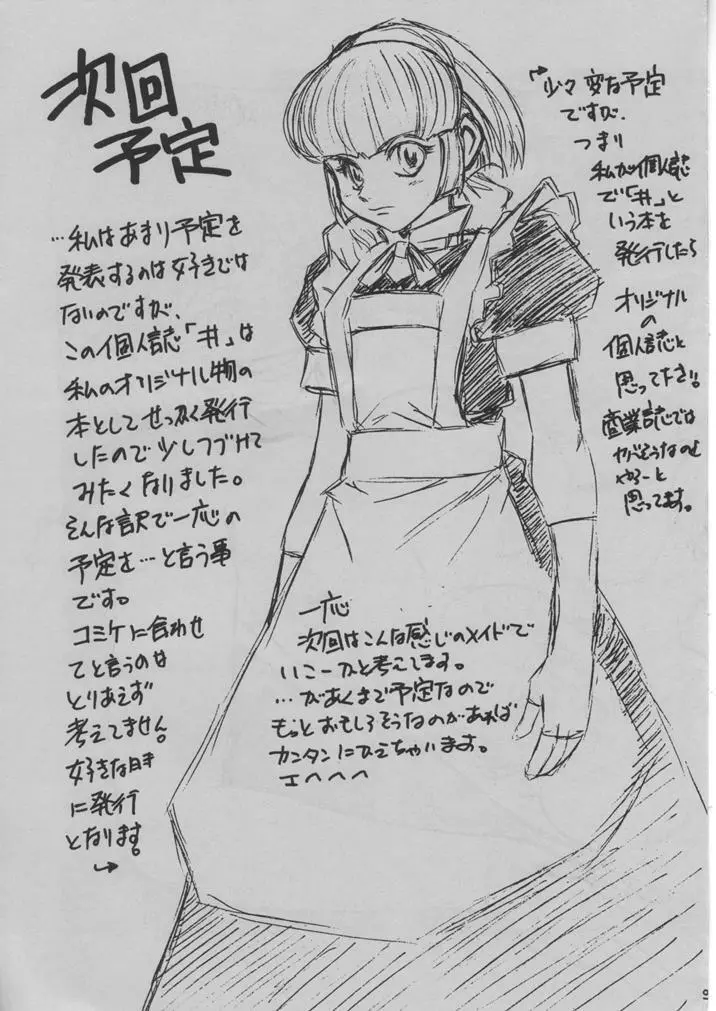 次回
予定
…私はあまり予定を
発表するのは好きでは
ないのですが、
この個人誌「井」は
私のオリジナル物の
本としてせっかく発行
したので少しつづけて
みたくなりました。
そんな訳で一応の
予定を…と言う事
です。
コミケに合わせ
てと言うのは
とりあえず
考えてません。
好きな時
に発行
となります。
→
少々変な予定
ですが、
つまり
私が個人誌
で「井」と
いう本を
発行したら
オリジナル
の
個人誌と
思って下さい。
商業誌では
ヤバそうなのを
やろーと
思ってます。
一応
次回はこんな感じのメイドで
いこーかと考えてます。
…があくまで予定なので
もっとおもしろそうなのがあれば
カンタンにひえちゃいます。
エへへへ
9